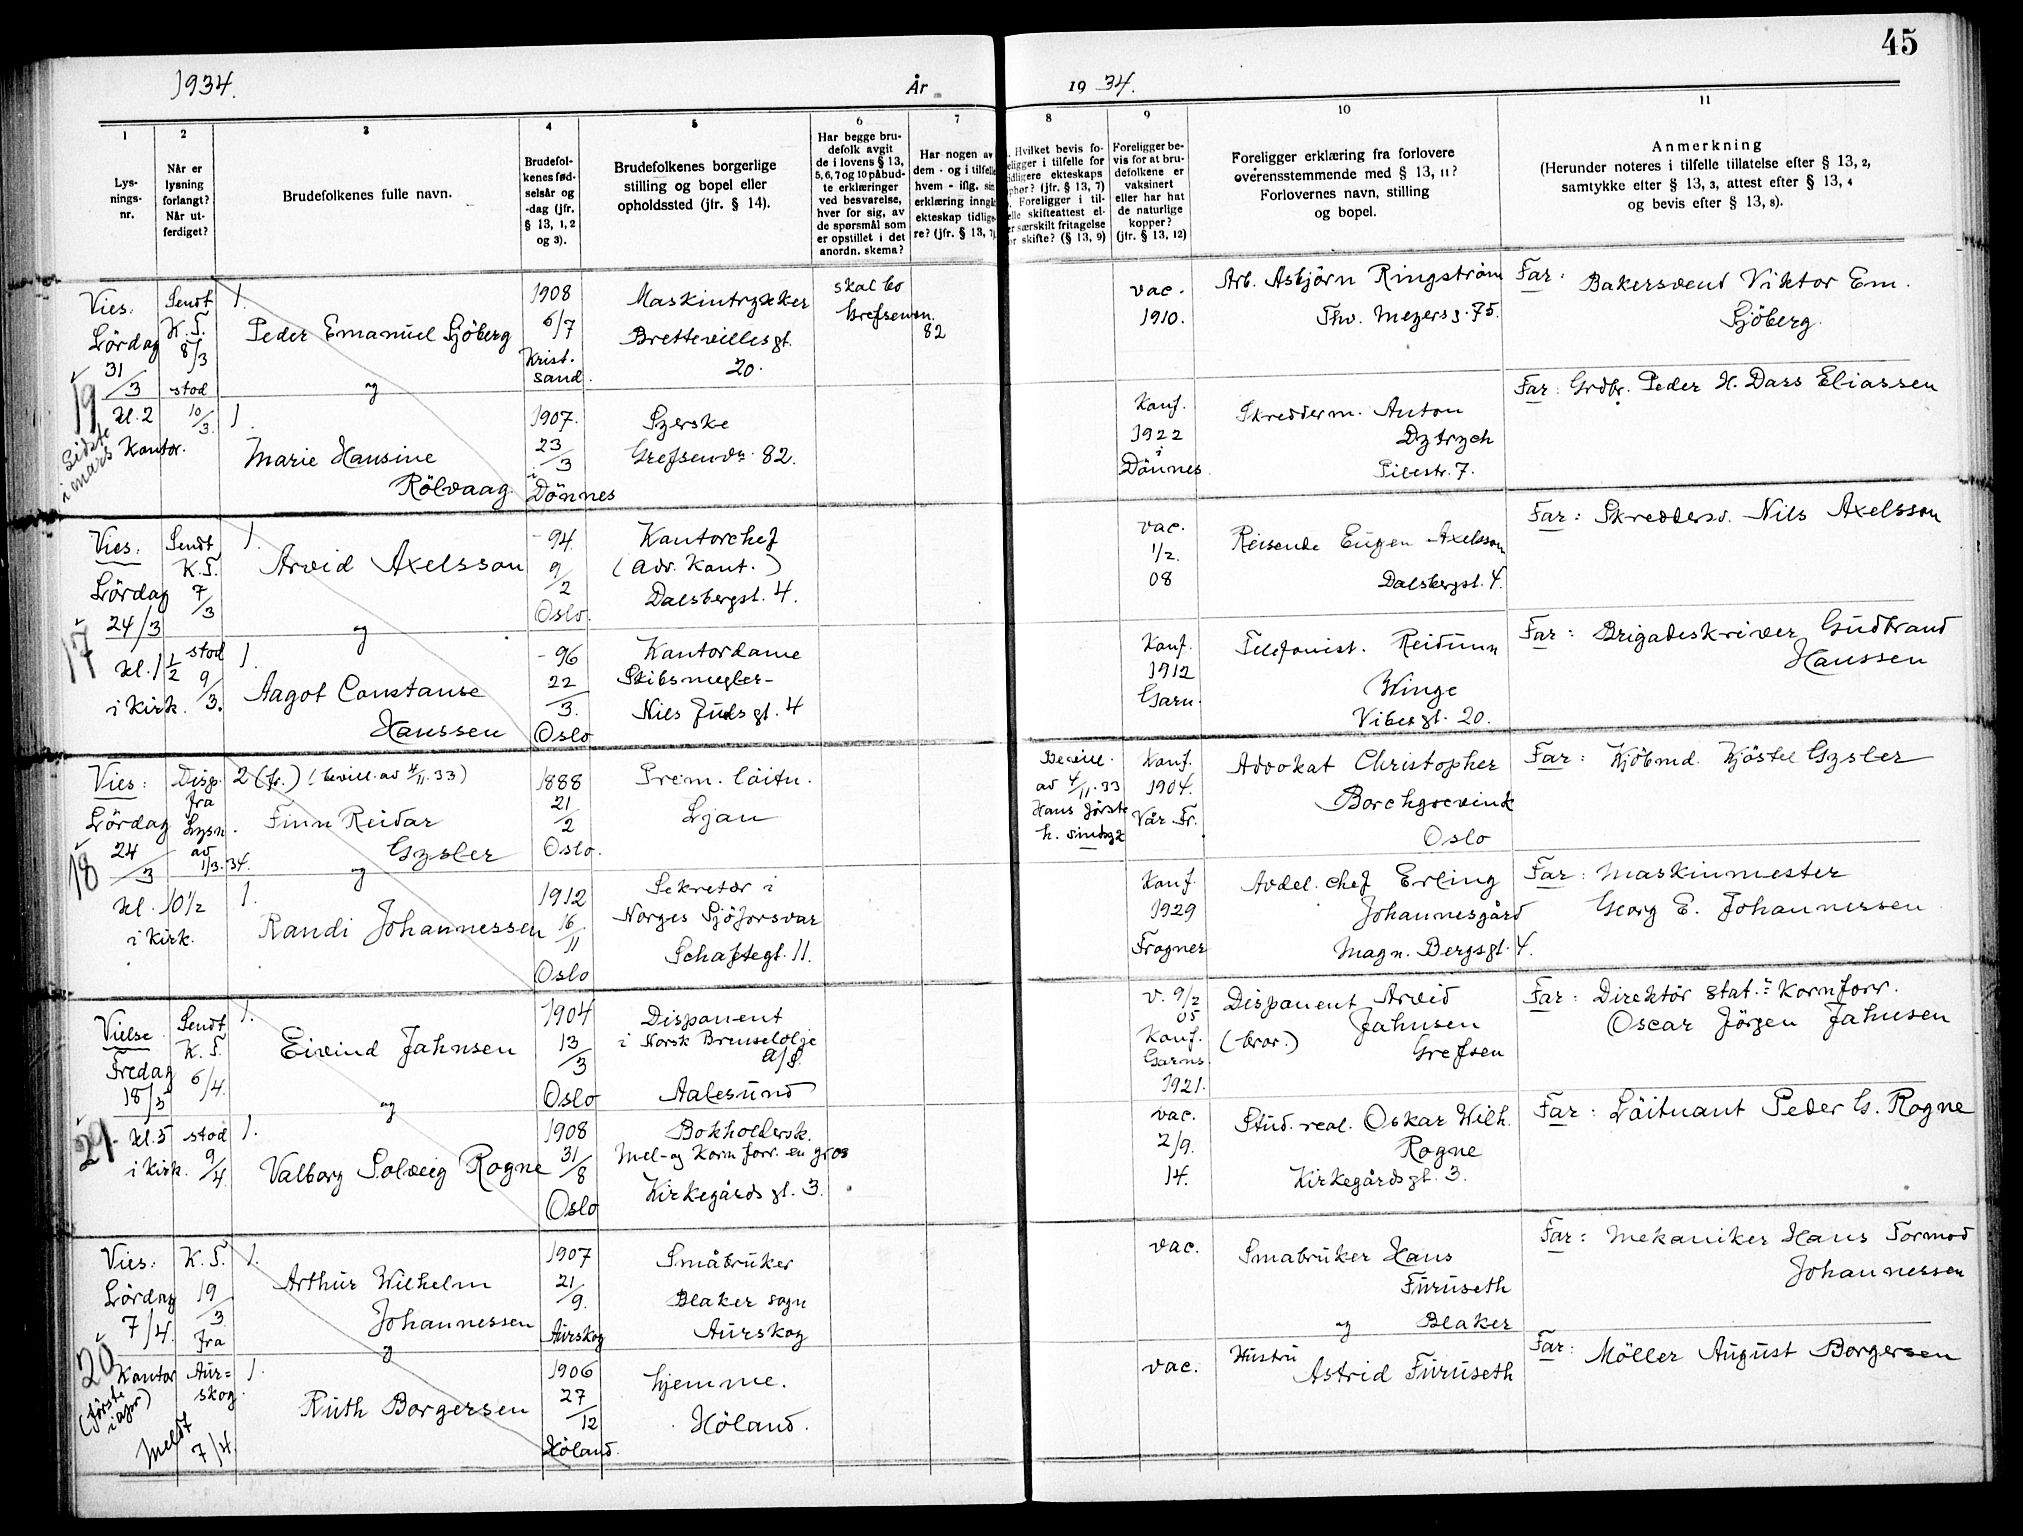 45
1934.
År
19 34.
1
2
3
4
5
6
7
8
9
10
11
Lys-
nings-
nr.
Når er
lysning
forlangt?
Når ut-
ferdiget?
Brudefolkenes fulle navn.
Brudefol-
kenes fød-
selsår og
-dag (jfr.
§ 13, 1, 2
og 3).
Brudefolkenes borgerlige
stilling og bopel eller
opholdssted (jfr. § 14).
Har begge bru-
defolk avgit
de i lovens § 13,
5, 6, 7 og 10 påbud-
te erklæringer
ved besvarelse,
hver for sig, av
de spørsmål som
er opstillet i det
anordn. skema?
Har nogen av
dem - og i tilfelle
hvem - iflg. sin
erklæring inngå
ekteskap tidlige-
re? (jfr. § 13, 7)
. Hvilket bevis fo-
eligger i tilfelle for
idligere ekteskaps
phør? (jfr. § 13, 7)
). Foreligger i til-
elle skifteattest el-
er særskilt fritagelse
or skifte? (§ 13, 9)
Foreligger be-
vis for at bru-
defolkene er
vaksinert
eller har hat
de naturlige
kopper?
(jfr. § 13, 12)
Foreligger erklæring fra forlovere
overensstemmende med § 13, 11?
Forlovernes navn, stilling
og bopel.
Anmerkning
(Herunder noteres i tilfelle tillatelse efter § 13, 2,
samtykke efter § 13, 3, attest efter § 13, 4
og bevis efter § 13, 8).
Vies:
Lördag
31
/3
19
Kl. 2
Kontor.
Sidste
i mars
Sendt
K. T.
8/3
stod
10
/3.
1.
Peder Emanuel Sjöberg
og
1.
Marie Hansine
Rölvaag
1908
6/7
Krist.
sand.
1907.
23
/3
i
Dönnes
Maskintrykker
Brettevillesgt.
20.
Syerske
Grefsenvn. 82.
skal bo
Grefsenvn.
82
vac.
1910.
Konf.
1922
i
Dönnes
Arb. Asbjörn Ringström
Thv. Meyersg. 75.
Skredderm. Anton
Dytrych
Pilestr. 7.
Far: Bakersvend Viktor Em.
Sjöberg.
Far: Grdbr. Peder H. Dass Eliassen
Vies:
Lördag
24/3
17
Kl. 1 1/2
i Kirk.
Sendt
K. T.
7
/3
stod
9
/3.
1.
Arvid Axelsson
og
1.
Aagot Constanse
Hanssen
- 94.
9
/2
Oslo.
- 96
22
/3.
Oslo
Kontorchef
(Adv. Kont.)
Dalsbergst. 4.
Kontordame
Skibsmegler-
Niels Juels gt. 4
vac.
1/2.
08
Konf.
1912
Garn.
Reisende Eugen Axelsson
Dalsbergst. 4.
Telefonist. Reidunn
Winge
Vibes gt. 20.
Far: Skredders. Nils Axelsson
Far: Brigadeskriver Gudbrand
Hanssen
Vies:
Lördag
24
/3
18
Kl. 10 1/2
i Kirk.
Disp.
fra
Lysn.
av
1/3.34.
2 (fr.) (bevill. av 4/11.33)
Finn Reidar
Gysler
og
1.
Randi Johannessen
1888
21
/2
Oslo.
1912
16
/11
Oslo
Prem. löitn.
Ljan
Sekretær i
Norges Sjöforsvar
Schaftegt. 11.
av 4/11.33
Hans förste
Konf.
1904.
Vår Fr.
Konf.
1929
Frogner
Advokat Christopher
Borchgrevink
Oslo
Avdel. chef Erling
Johannesgård
Magn. Bergsgt. 4.
Far: Kjöbmd. Kjöstel Gysler
Far: Maskinmester
Georg E. Johannessen
Vielse
Fredag
18/5
29.
Kl. 5
i Kirk.
Sendt
K. T.
6/4.
stod
9
/4.
1.
Eivind Jahnsen
og
1.
Valborg Solveig Rogne
1904
13
/3
Oslo
1908
31
/8
Oslo
Disponent
i Norsk Brenselolje
A/S.
Aalesund
Bokholdersk.
Mel- og Korn forr. en gros
Kirkegårds gt. 3.
v. 9/2
05
Konf.
Garns.
1921.
vac.
2/9.
14.
Disponent Arvid
Jahnsen
(bror.)
Grefsen
Stud. real. Oskar Wilh.
Rogne
Kirkegårds gt. 3.
Far: Direktör Stat.s Kornforr.
Oscar Jörgen Jahnsen
Far: Löitnant Peder G. Rogne
Vies:
Lördag
7/4.
20
Kontor
(förste
i apr)
Meldt
7/4.
K. T.
19
/3
fra
Aur-
skog.
1.
Arthur Wilhelm
Johannessen
og
1.
Ruth Borgersen
1907
21
/9.
Aurskog
1906
27
/12
Höland.
Småbruker
Blaker sogn
Aurskog
hjemme.
Höland.
vac.
vac.
Småbruker Hans
Furuseth
og Blaker
Hustru
Astrid Furuseth
Far: Mekaniker Hans Tormod
Johannessen
Far: Möller August Borgersen